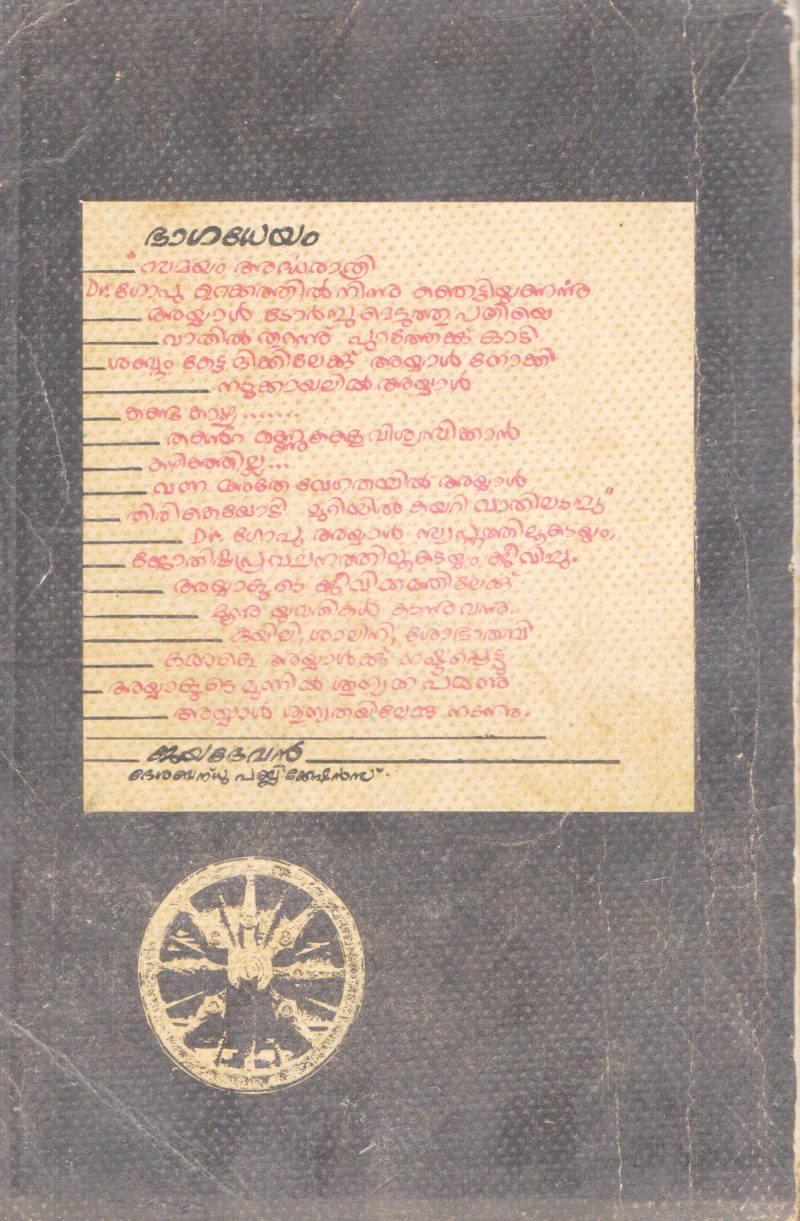 ഭാഗധേയം
"സമയം അർദ്ധരാത്രി
Dr. ഗോപു ഉറക്കത്തിൽ നിന്നു ഞെട്ടിയുണർന്നു
അയ്യാൾ ടോർച്ചുമെടുത്തു പതിയെ
വാതിൽ തുറന്നു് പുറത്തേക്ക് ഓടി
ശബ്ദം കേട്ട ദിക്കിലേക്കു് അയ്യാൾ നോക്കി
നടുക്കായലിൽ അയ്യാൾ
കണ്ട കാഴ്ച .......
തൻെറ കണ്ണുകളെ വിശ്വസിക്കാൻ
കഴിഞ്ഞില്ല...
വന്ന അതേ വേഗതയിൽ അയ്യാൾ
തിരികെയോടി മുറിയിൽ കയറി വാതിലടച്ചു"
Dr. ഗോപു അയ്യാൾ സ്വപ്നത്തിലൂടെയും,
ജ്യോതിഷപ്രവചനത്തിലൂടെയും ജീവിച്ചു.
അയ്യാളുടെ ജീവിതത്തിലേക്ക്
മൂന്നു യുവതികൾ കടന്നു വന്നു.
മയിലി, ശാലിനി, ശോഭാതമ്പി
അയ്യാൾക്കു് നഷ്ടപ്പെട്ടു
അയ്യാളുടെ മുന്നിൽ ശൂന്യത പരന്നു
അയ്യാൾ ശൂന്യതയിലേക്കു നടന്നു.
ജയദേവൻ
ദേശബന്ധു പബ്ലിക്കേഷൻസ്.